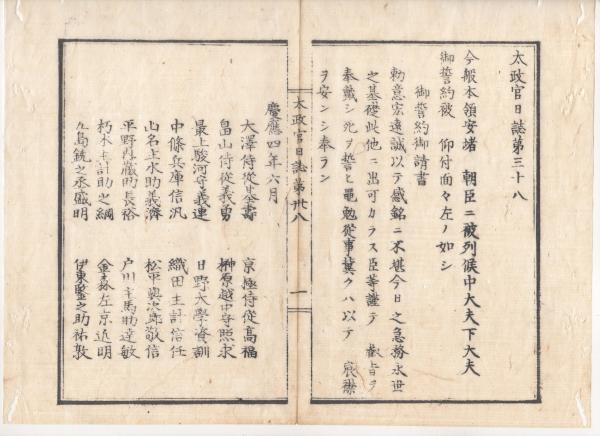 太政官日誌第三十八
今般本領安堵 朝臣ニ被列候中大夫下大夫
御誓約被 仰付面々左ノ如シ
御誓約御請書
勅意宏遠誠以テ感銘ニ不堪今日之急務永世
之基礎此他ニ出可カラス臣等謹テ 叡旨ヲ
奉戴シ死ヲ誓ヒ黽勉従事冀クハ以テ 宸襟
ヲ安ンシ奉ラン
慶應四年六月
大澤侍従基寿 京極侍従高福
畠山侍従義勇 榊原越中守照求
最上駿河守義連 日野大學資訓
中條兵庫信汎 織田主計信任
山名主水助義濟 松平與次郎敬信
平野内蔵助長裕 戸川主馬助達敏
朽木主計助之綱 金森左京近明
五島銑之丞盛明 伊東鋻之助祐敦
太政官日誌第卅八 一